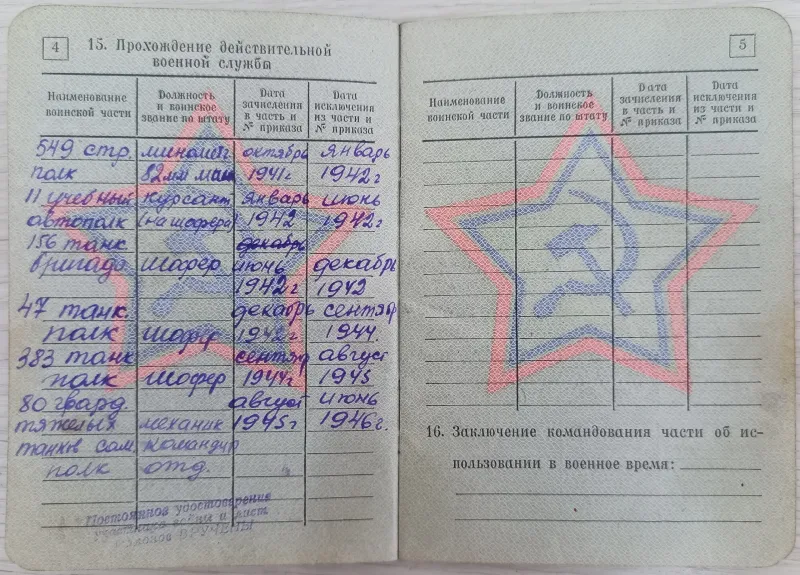 4
15. Прохождение действительной
военной службы
Наименование воинской части
Должность и воинское звание по штату
Дата зачисления в часть и № приказа
Дата исключения из части и № приказа
549 стр. миномётч октябрь январь
полк 82мм мин 1941г 1942г
11 учебный курсант январь июнь
автополк (на шофера) 1942 1942г
156 танк декабрь
бригада шофер июнь декабрь
1942г 1942
47 танк. декабрь сентябр
полк шофер 1942г 1944.
383 танк сентяб август
полк шофер 1944г 1945
80 гвард. август июнь
тяжелых механик 1945г 1946г.
танков сам. командир
полк отд.
Постоянное удостоверение
участника войны и лист
талонов ВРУЧЕНЫ
5
Наименование воинской части
Должность и воинское звание по штату
Дата зачисления в часть и № приказа
Дата исключения из части и № приказа
16. Заключение командования части об ис-
пользовании в военное время: